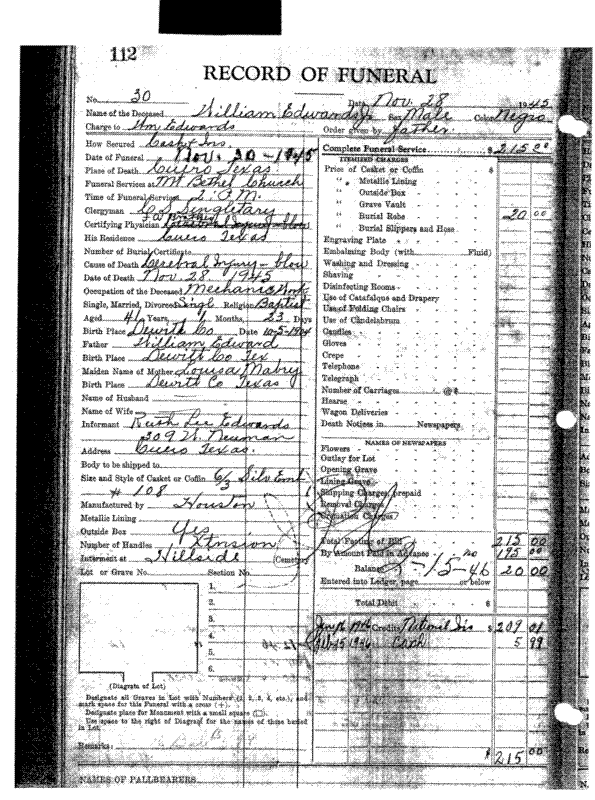 112
RECORD OF FUNERAL
No. 30 Date Nov. 28 1945
Name of the Deceased William Edwards Jr. Sex Male Color Negro
Charge to Wm Edwards Order given by father.
How Secured Cash & Ins.
Date of Funeral Nov. 30-1945
Place of Death Cuero Texas
Funeral Services at Mt Bethel Church
Time of Funeral Services 2 P.M.
Clergyman C.S. Singletary
Certifying Physician
His Residence Cuero Texas
Number of Burial Certificate
Cause of Death Cerebral Injury - blow
Date of Death Nov 28 1945
Occupation of the Deceased Mechanic
Single, Married, Divorced Singl Religion Baptist
Aged 41 Years, 1 Months, 23 Days
Birth Place Dewitt Co Date 10-5-1904
Father William Edward
Birth Place Dewitt Co Tex
Maiden Name of Mother Louisa Mabry
Birth Place Dewitt Co Texas
Name of Husband
Name of Wife
Informant Ruth Lee Edwards
Address 309 W. Newman
Cuero Texas.
Body to be shipped to
Size and Style of Casket or Coffin 6/3 Silv Emb
# 108
Manufactured by Houston
Metallic Lining
Outside Box Yes
Number of Handles Xtnsion
Interment at Hillside (Cemetery
Lot or Grave No. Section No.
1.
2.
3.
4.
5.
6.
(Diagram of Lot)
Designate all Graves in Lot with Numbers (1, 2, 3, 4, etc.), and
mark space for this Funeral with a cross (+).
Designate place for Monument with a small square (□).
Use space to the right of Diagram for the names of those buried
in Lot.
Remarks:
NAMES OF PALLBEARERS
Complete Funeral Service $ 215 00
ITEMIZED CHARGES
Price of Casket or Coffin $
" Metallic Lining
" Outside Box
" Grave Vault
" Burial Robe 20 00
" Burial Slippers and Hose
Engraving Plate
Embalming Body (with Fluid)
Washing and Dressing
Shaving
Disinfecting Rooms
Use of Catafalque and Drapery
Use of Folding Chairs
Use of Candelabrum
Candles
Gloves
Crepe
Telephone
Telegraph
Number of Carriages @$
Hearse
Wagon Deliveries
Death Notices in Newspapers
NAMES OF NEWSPAPERS
Flowers
Outlay for Lot
Opening Grave
Lining Grave
Shipping Charges, prepaid
Removal Charges
Cremation Charges
Total Footing of Bill 215 00
By Amount Paid in Advance 195 00
Balance 20 00
Entered into Ledger, page or below
Total Debit $
1946 Credit National Ins $ 209 01
1946 Cash 5 99
$ 215 00